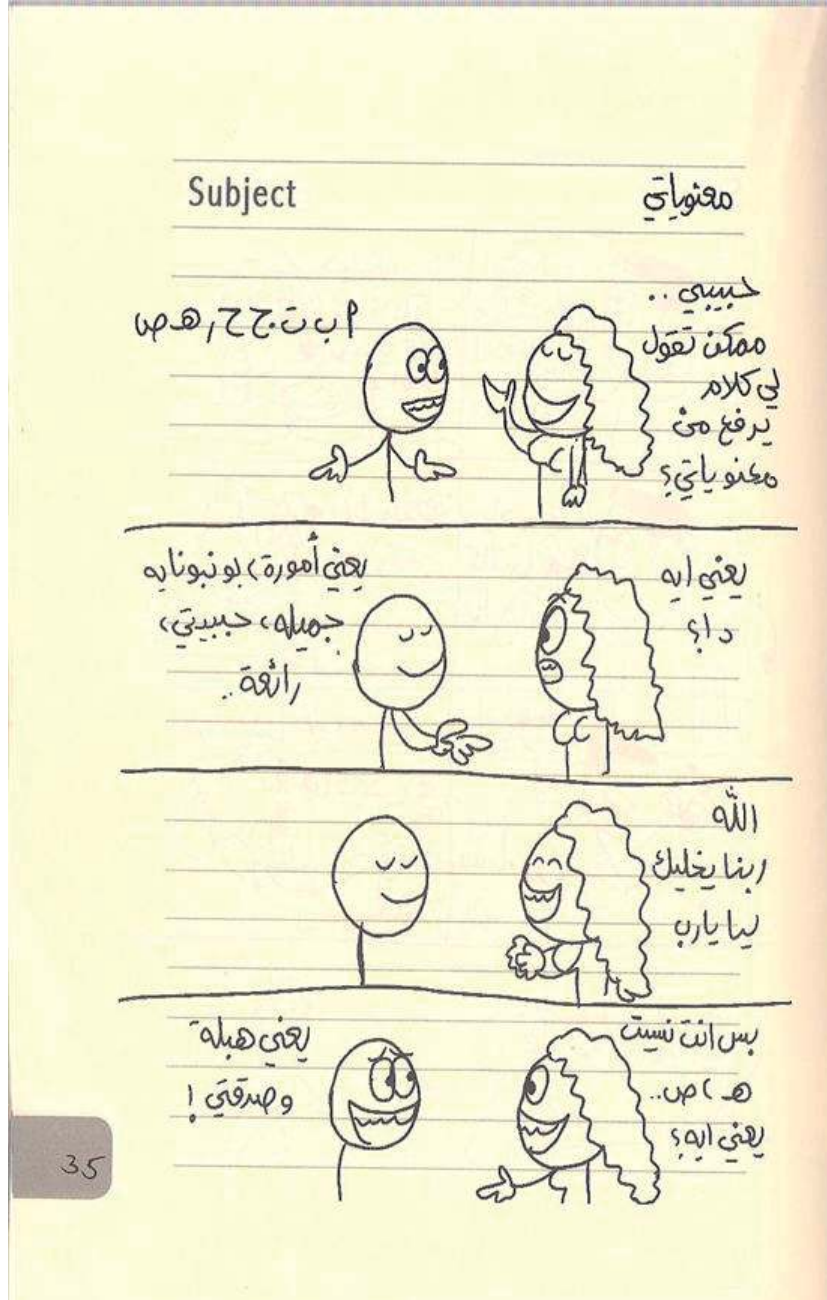 Subject
معنوياتي
حبيبي ..
ممكن تقول
لي كلام
يرفع من
معنوياتي؟
أ ب ت ج ح ر هـ ص
يعني ايه
دا؟
يعني أمورة، بونبونايه
جميله، حبيبتي،
رائعة..
الله
ربنا يخليك
ليا يارب
بس انت نسيت
هـ ، ص..
يعني ايه؟
يعني هبلة
وصدقتي !
35